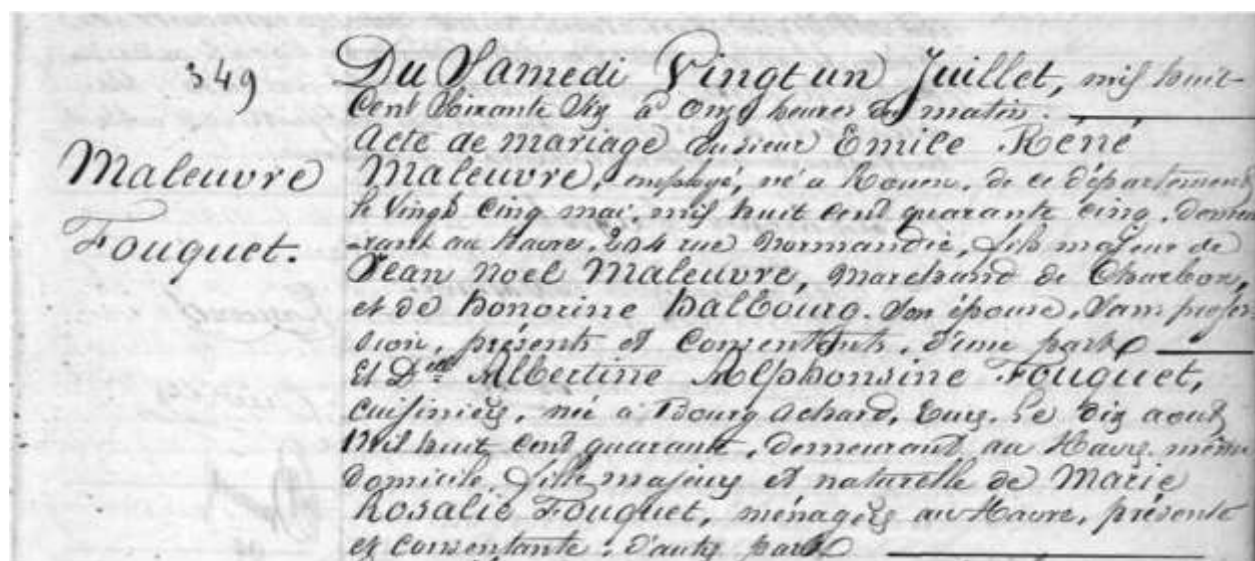 349
Du Samedi Vingt un Juillet, mil huit
Cent Soixante Dix à Onze heures du matin.
Acte de mariage du sieur Emile Réné
Maleuvre, employé, né à Rouen, de ce département
le Vingt Cinq mai, mil huit cent quarante cinq, demeu
-rant au havre, 204 rue Normandie, fils majeur de
Jean Noel Maleuvre, Marchand de Charbon,
et de honorine halbourg. Son épouse, Sans profes
sion, présents et Consentants, d'une part
Et Delle Albertine Alphonsine Fouquet,
cuisinière, née à Bourg Achard, Eure, le dix août
Mil huit cent quarante, demeurant au Havre même
domicile, fille majeure et naturelle de Marie
Rosalie Fouquet, ménagère au Havre, présente
et consentante, d'autre part
Maleuvre
Fouquet.